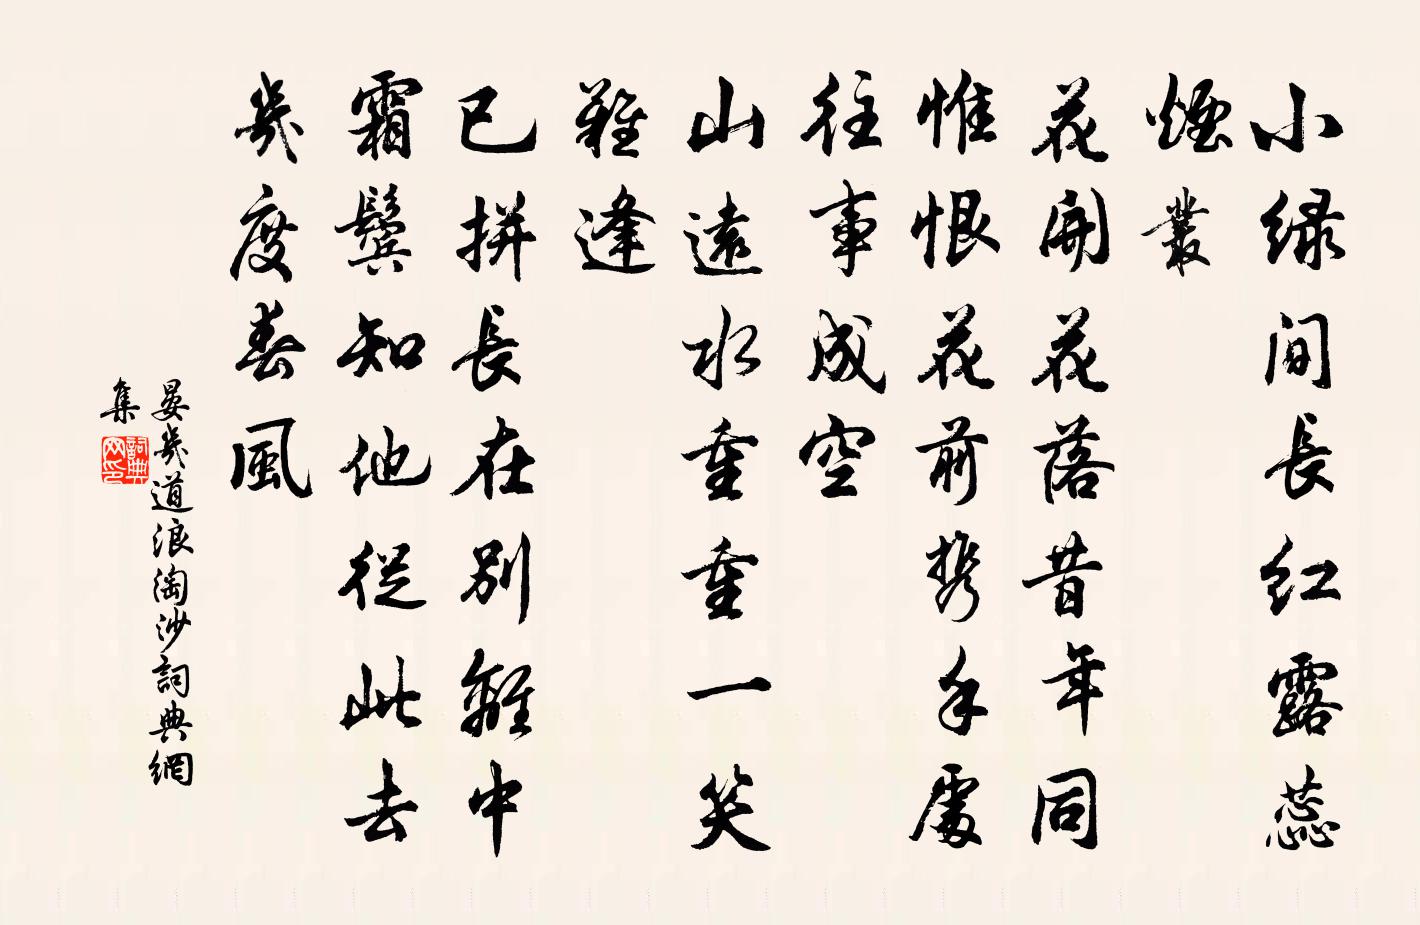 小绿间長红露蕊
煙叢
花開花落昔年同
惟恨花前携手處
往事成空
山遠水重重一笑
難逢
已拼長在别離中
霜鬢知他從此去
幾度春風
晏幾道浪淘沙詞典網
集
詞典
网印